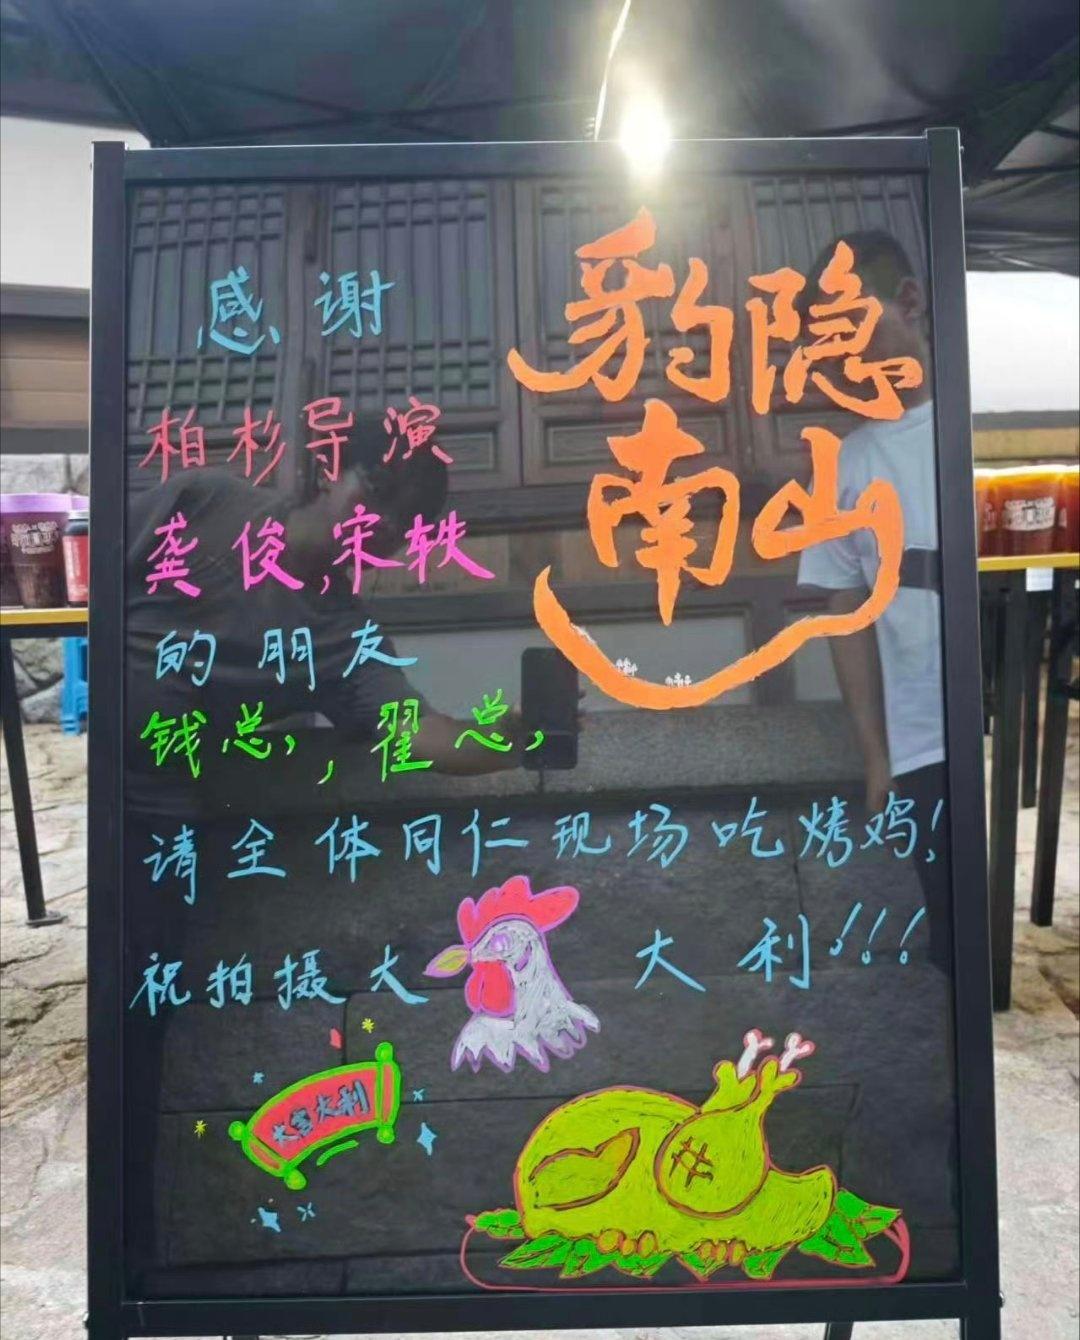 豹隐
南山
感谢
柏杉导演
龚俊,宋轶
的朋友
钱总,,翟总,
请全体同仁现场吃烤鸡!
祝拍摄大 大利!!!
大吉大利